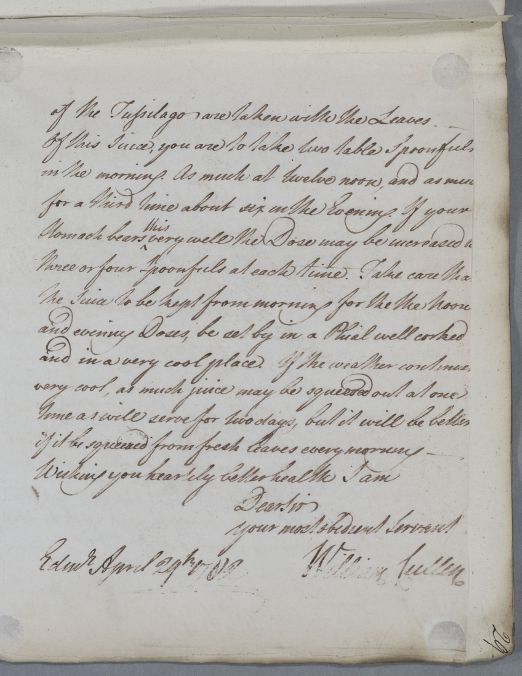 of the Tussilago are taken with the Leaves.
Of this Juice, you are to take two table Spoonfuls
in the morning. As much at twelve noon, and as much
for a third time about six in the Evening. If your
Stomach bears this very well the Dose may be increased to
three or four Spoonfuls at each time. Take care tha
the Juice to be kept from morning for the the Noon
and evening Doses, be set by in a Phial well corked
and in a very cool place. If the weather continue
very cool, as much juice may be squeezed out at one
time as will serve for two days, but it will be better
if it be squeezed from fresh leaves every morning —
Wishing you heartily better health I am
Dear Sir
your most obedient Servant
Edinr. April 29th.
William Cullen